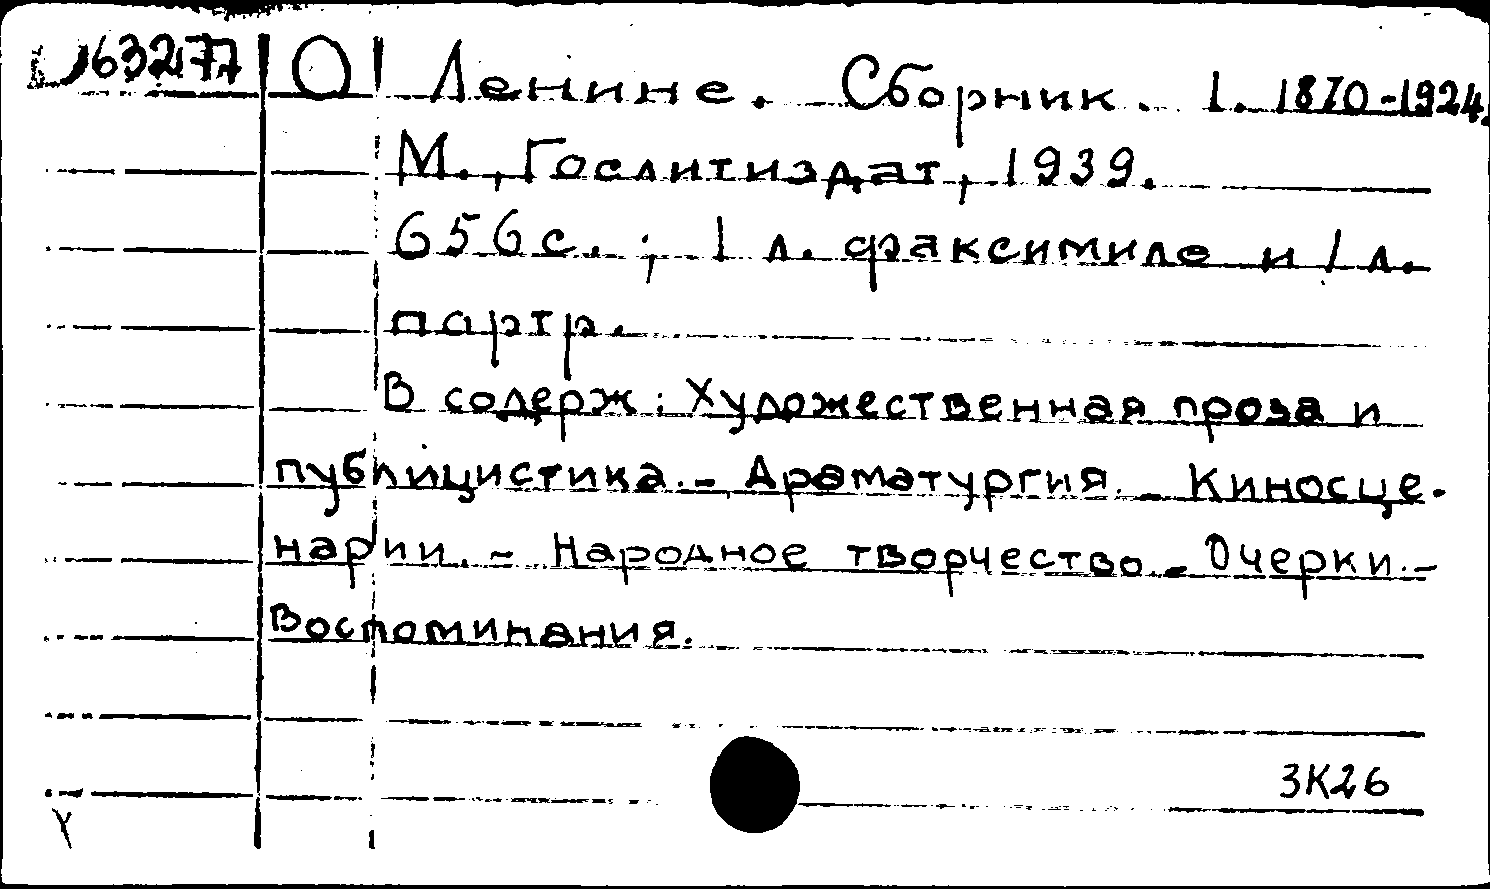 63277 О Ленине. Сборник. 1. 1870-1924.
М., Гослитиздат, 1939.
656 с.; 1 л. факсимиле и 1 л.
портр.
В содерж: Художественная проза и
публицистика. - Драматургия. - Киносце-
нарии. - Народное творчество - Очерки. -
Воспоминания.
3К26